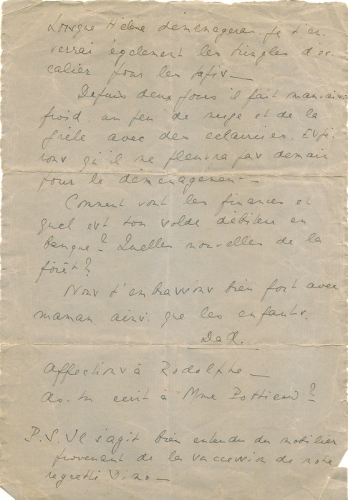 Lorsque Hélène déménagera, je t'en-
verrai également les tringles d'es-
calier pour les tapis —
Depuis deux jours il fait mauvais
froid, un peu de neige et de la
grêle avec des eclaircies. Espé-
rons qu'il ne pleuvra pas demain
pour le déménagement —
Comment vont les finances et
quel est ton solde débiteur en
banque ? Quelles nouvelles de la
forêt ?
Nous t'embrassons bien fort avec
maman ainsi que les enfants.
Affection à Rodolphe —
As-tu ecrit à Mme ?
P.S. Il s'agit bien entendu du mobilier
provenant de la succession de notre
regretté